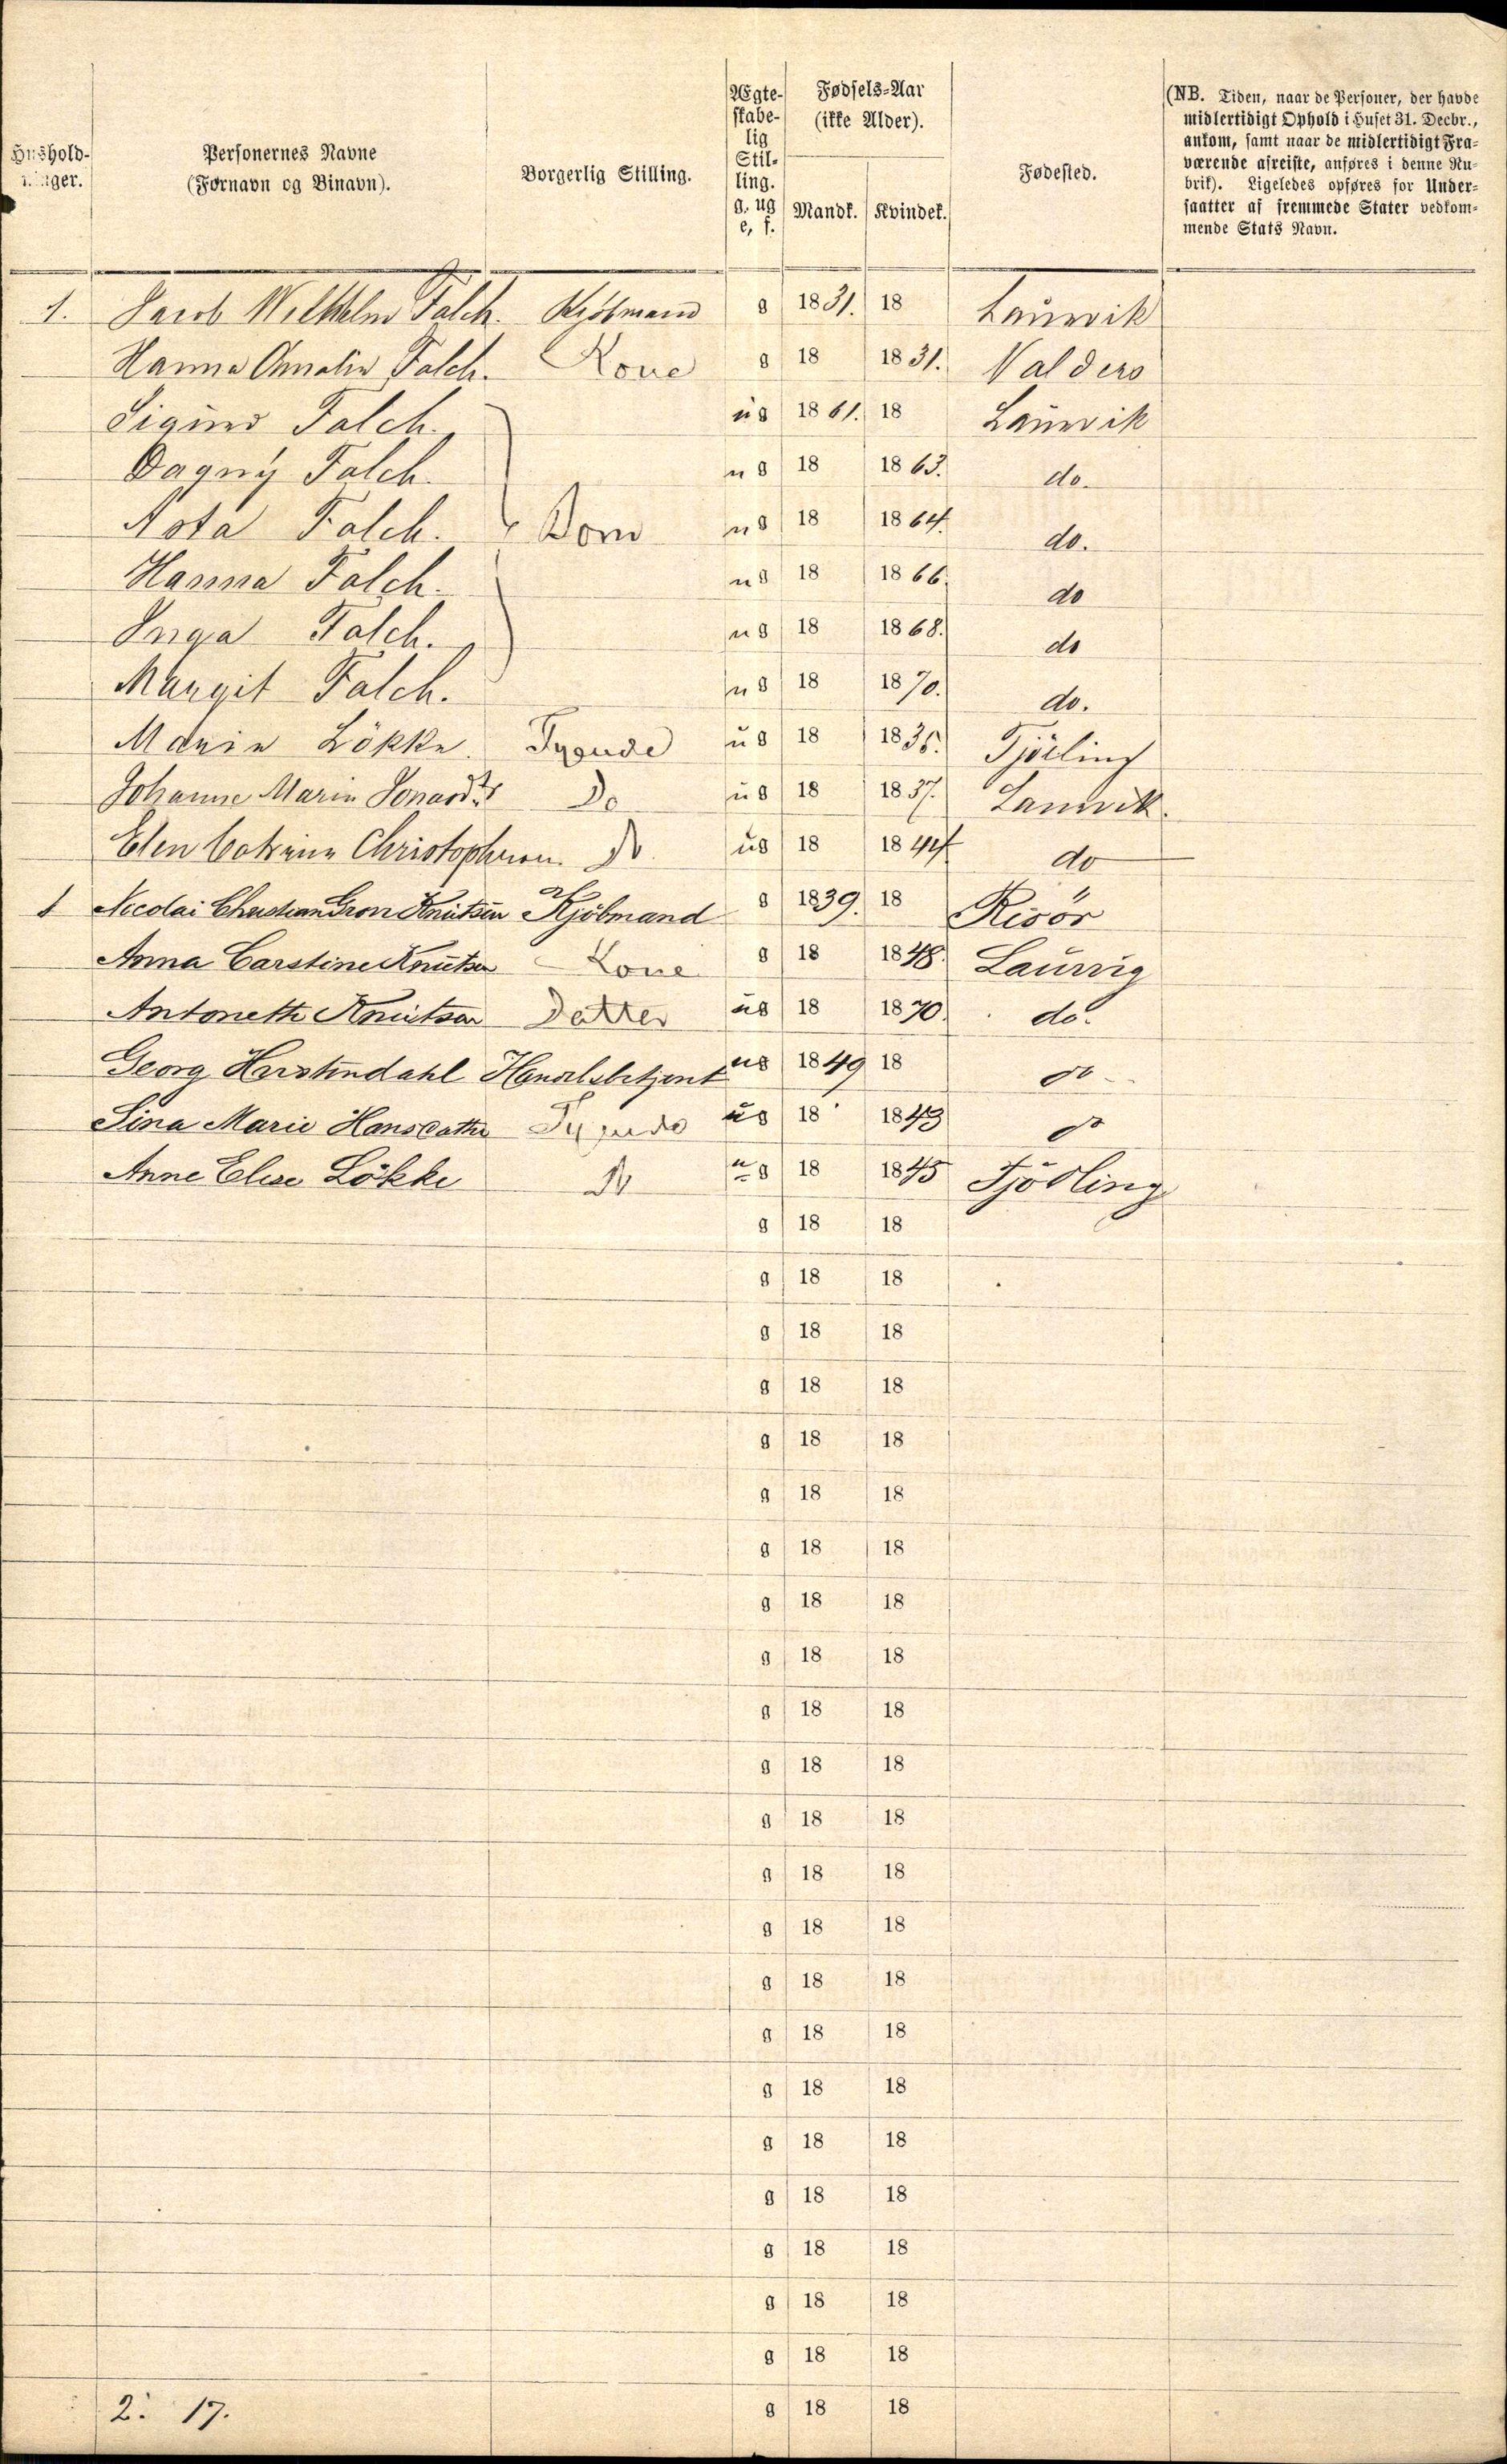 Hushold-
ninger.
Personernes Navne
(Fornavn og Binavn).
Borgerlig Stilling.
Ægte-
skabe-
lig
Stil-
ling.
g, ug
e, f.
Fødsels-Aar
(ikke Alder).
Mandk. Kvindek.
Fødested.
(NB. Tiden, naar de Personer, der havde
midlertidigt Ophold i Huset 31. Decbr.,
ankom, samt naar de midlertidigt Fra-
værende afreiste, anføres i denne Ru-
brik). Ligeledes opføres for Under-
saatter af fremmede Stater vedkom-
mende Stats Navn.
1. Jacob Wilhelm Falch. Kjöbmand g 1831. 18 Laurvik
Hanna Amalia Falch. Kone g 18 1831. Valders
Sigurd Falch. ug 1861. 18 Laurvik
Dagny Falch. ug 18 1863. do.
Asta Falch. Born ug 18 1864. do.
Hanna Falch. ug 18 1866. do
Inga Falch. ug 18 1868. do
Margit Falch. ug 18 1870. do.
Maria Lökke. Tyende ug 18 1835. Tjölling
Johanne Marie Jonasdtr Do ug 18 1837. Laurvik.
Elen Catrine Christophersen. Do ug 18 1844 do
1 Nicolai Christian Gron Knutsen Kjöbmand g 1839. 18 Risör
Anna Carstine Knutsen Kone g 18 1848. Laurvig
Antonette Knutsen Datter ug 18 1870. do.
Georg Herstendahl Handelsbetjent ug 1849 18 do
Sina Marie Hansdatter Tyende ug 18 1843 do
Anne Elise Lökke Do ug 18 1845 Tjölling
g 18 18
g 18 18
g 18 18
g 18 18
g 18 18
g 18 18
g 18 18
g 18 18
g 18 18
g 18 18
g 18 18
g 18 18
g 18 18
g 18 18
g 18 18
g 18 18
g 18 18
g 18 18
g 18 18
g 18 18
g 18 18
g 18 18
2. 17. g 18 18